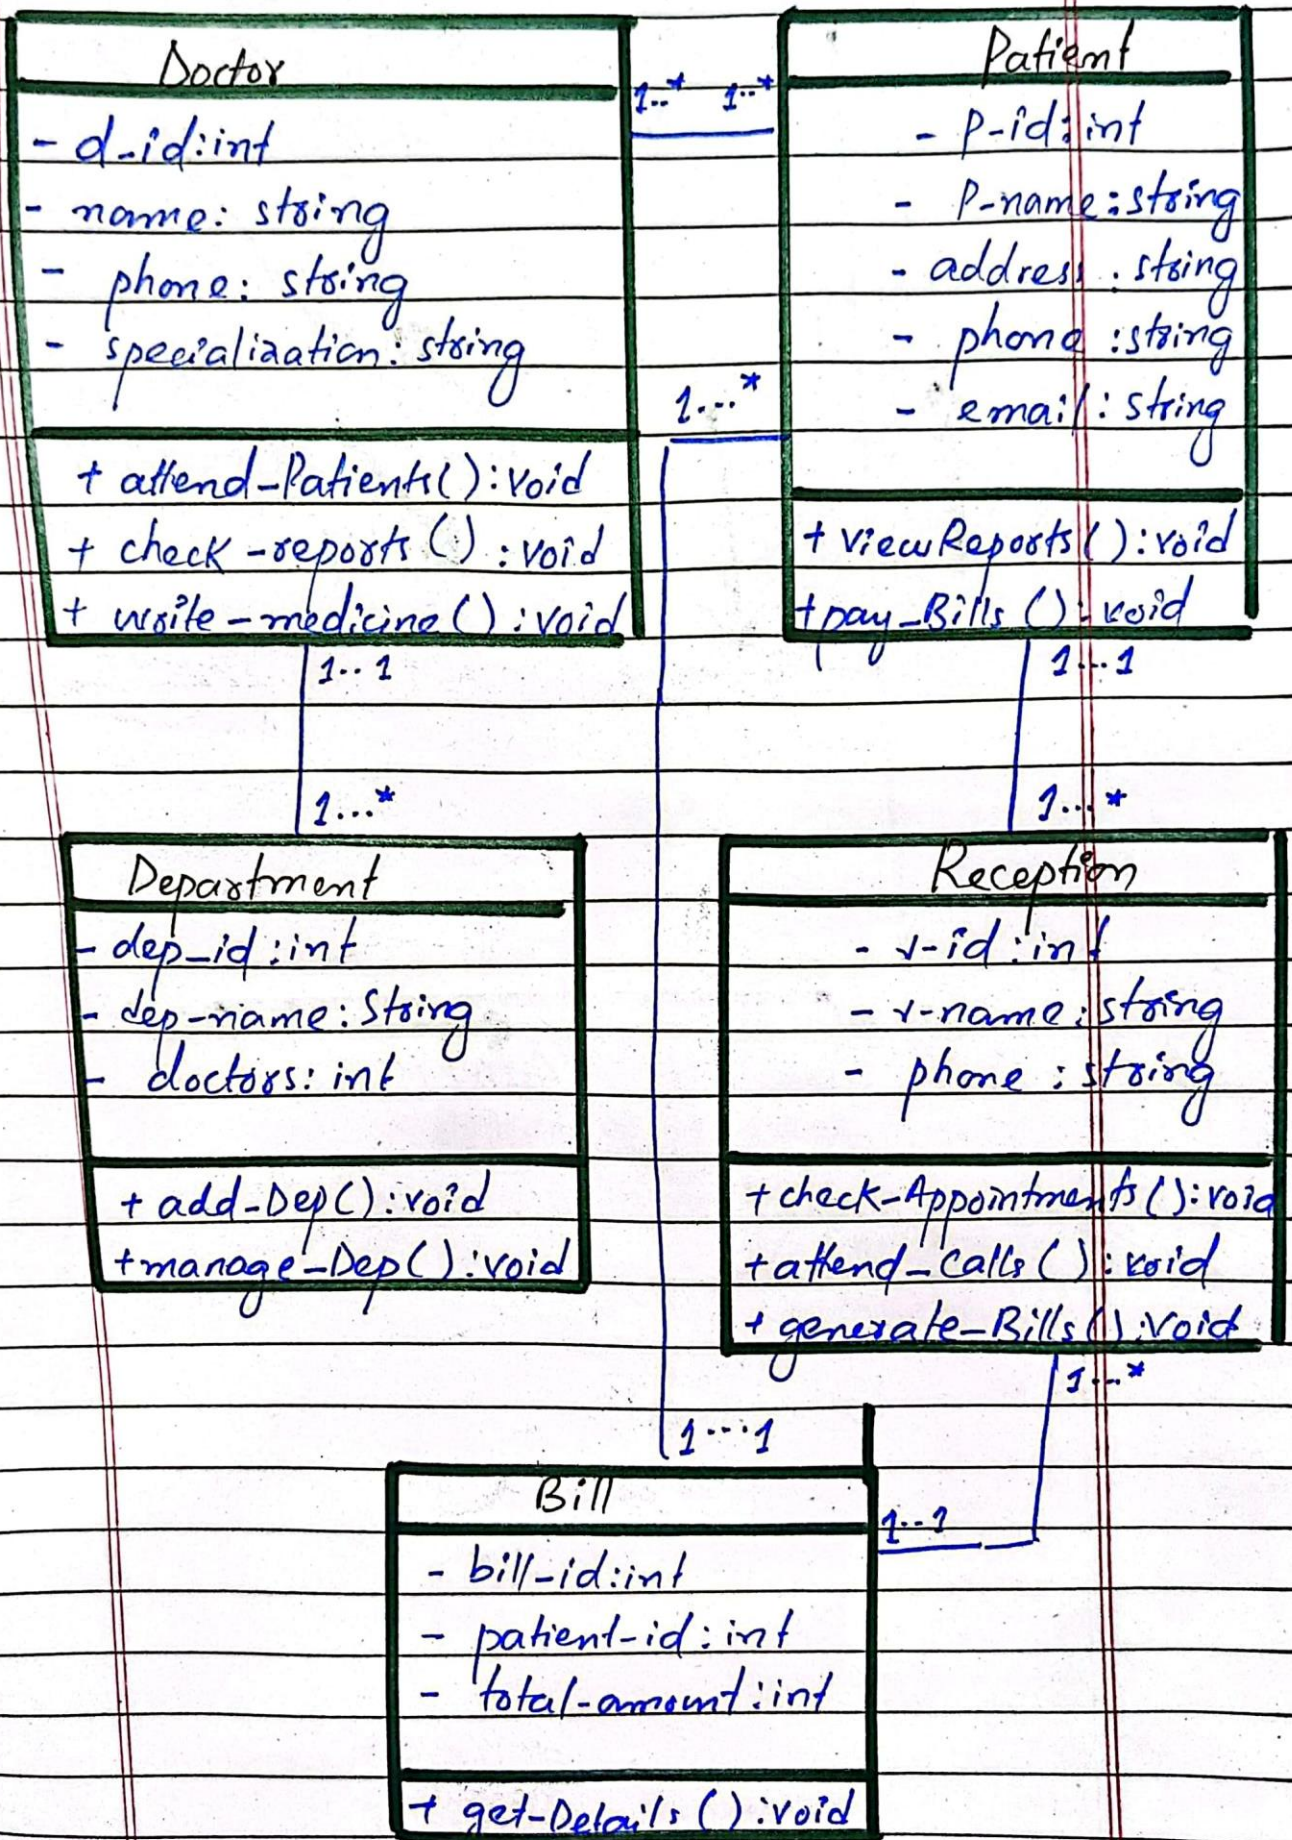 Doctor
- d-id:int
- name: string
- phone: string
- specialization: string
+ attend-Patients():void
+ check-reports():void
+ write-medicine():void
1..* 1..*
Patient
- P-id:int
- P-name:string
- address:string
- phone:string
- email:string
+ viewReports():void
+pay_Bills():void
1...*
1..1
1...*
1...1
1...*
Department
- dep_id:int
- dep-name:String
- doctors: int
+ add-Dep():void
+manage-Dep():void
Reception
- r-id:int
- r-name:string
- phone:string
+check-Appointments():void
+attend_Calls():void
+generate-Bills():void
1...*
1...1
1..1
Bill
- bill-id:int
- patient-id:int
- total-amount:int
+ get-Details():void